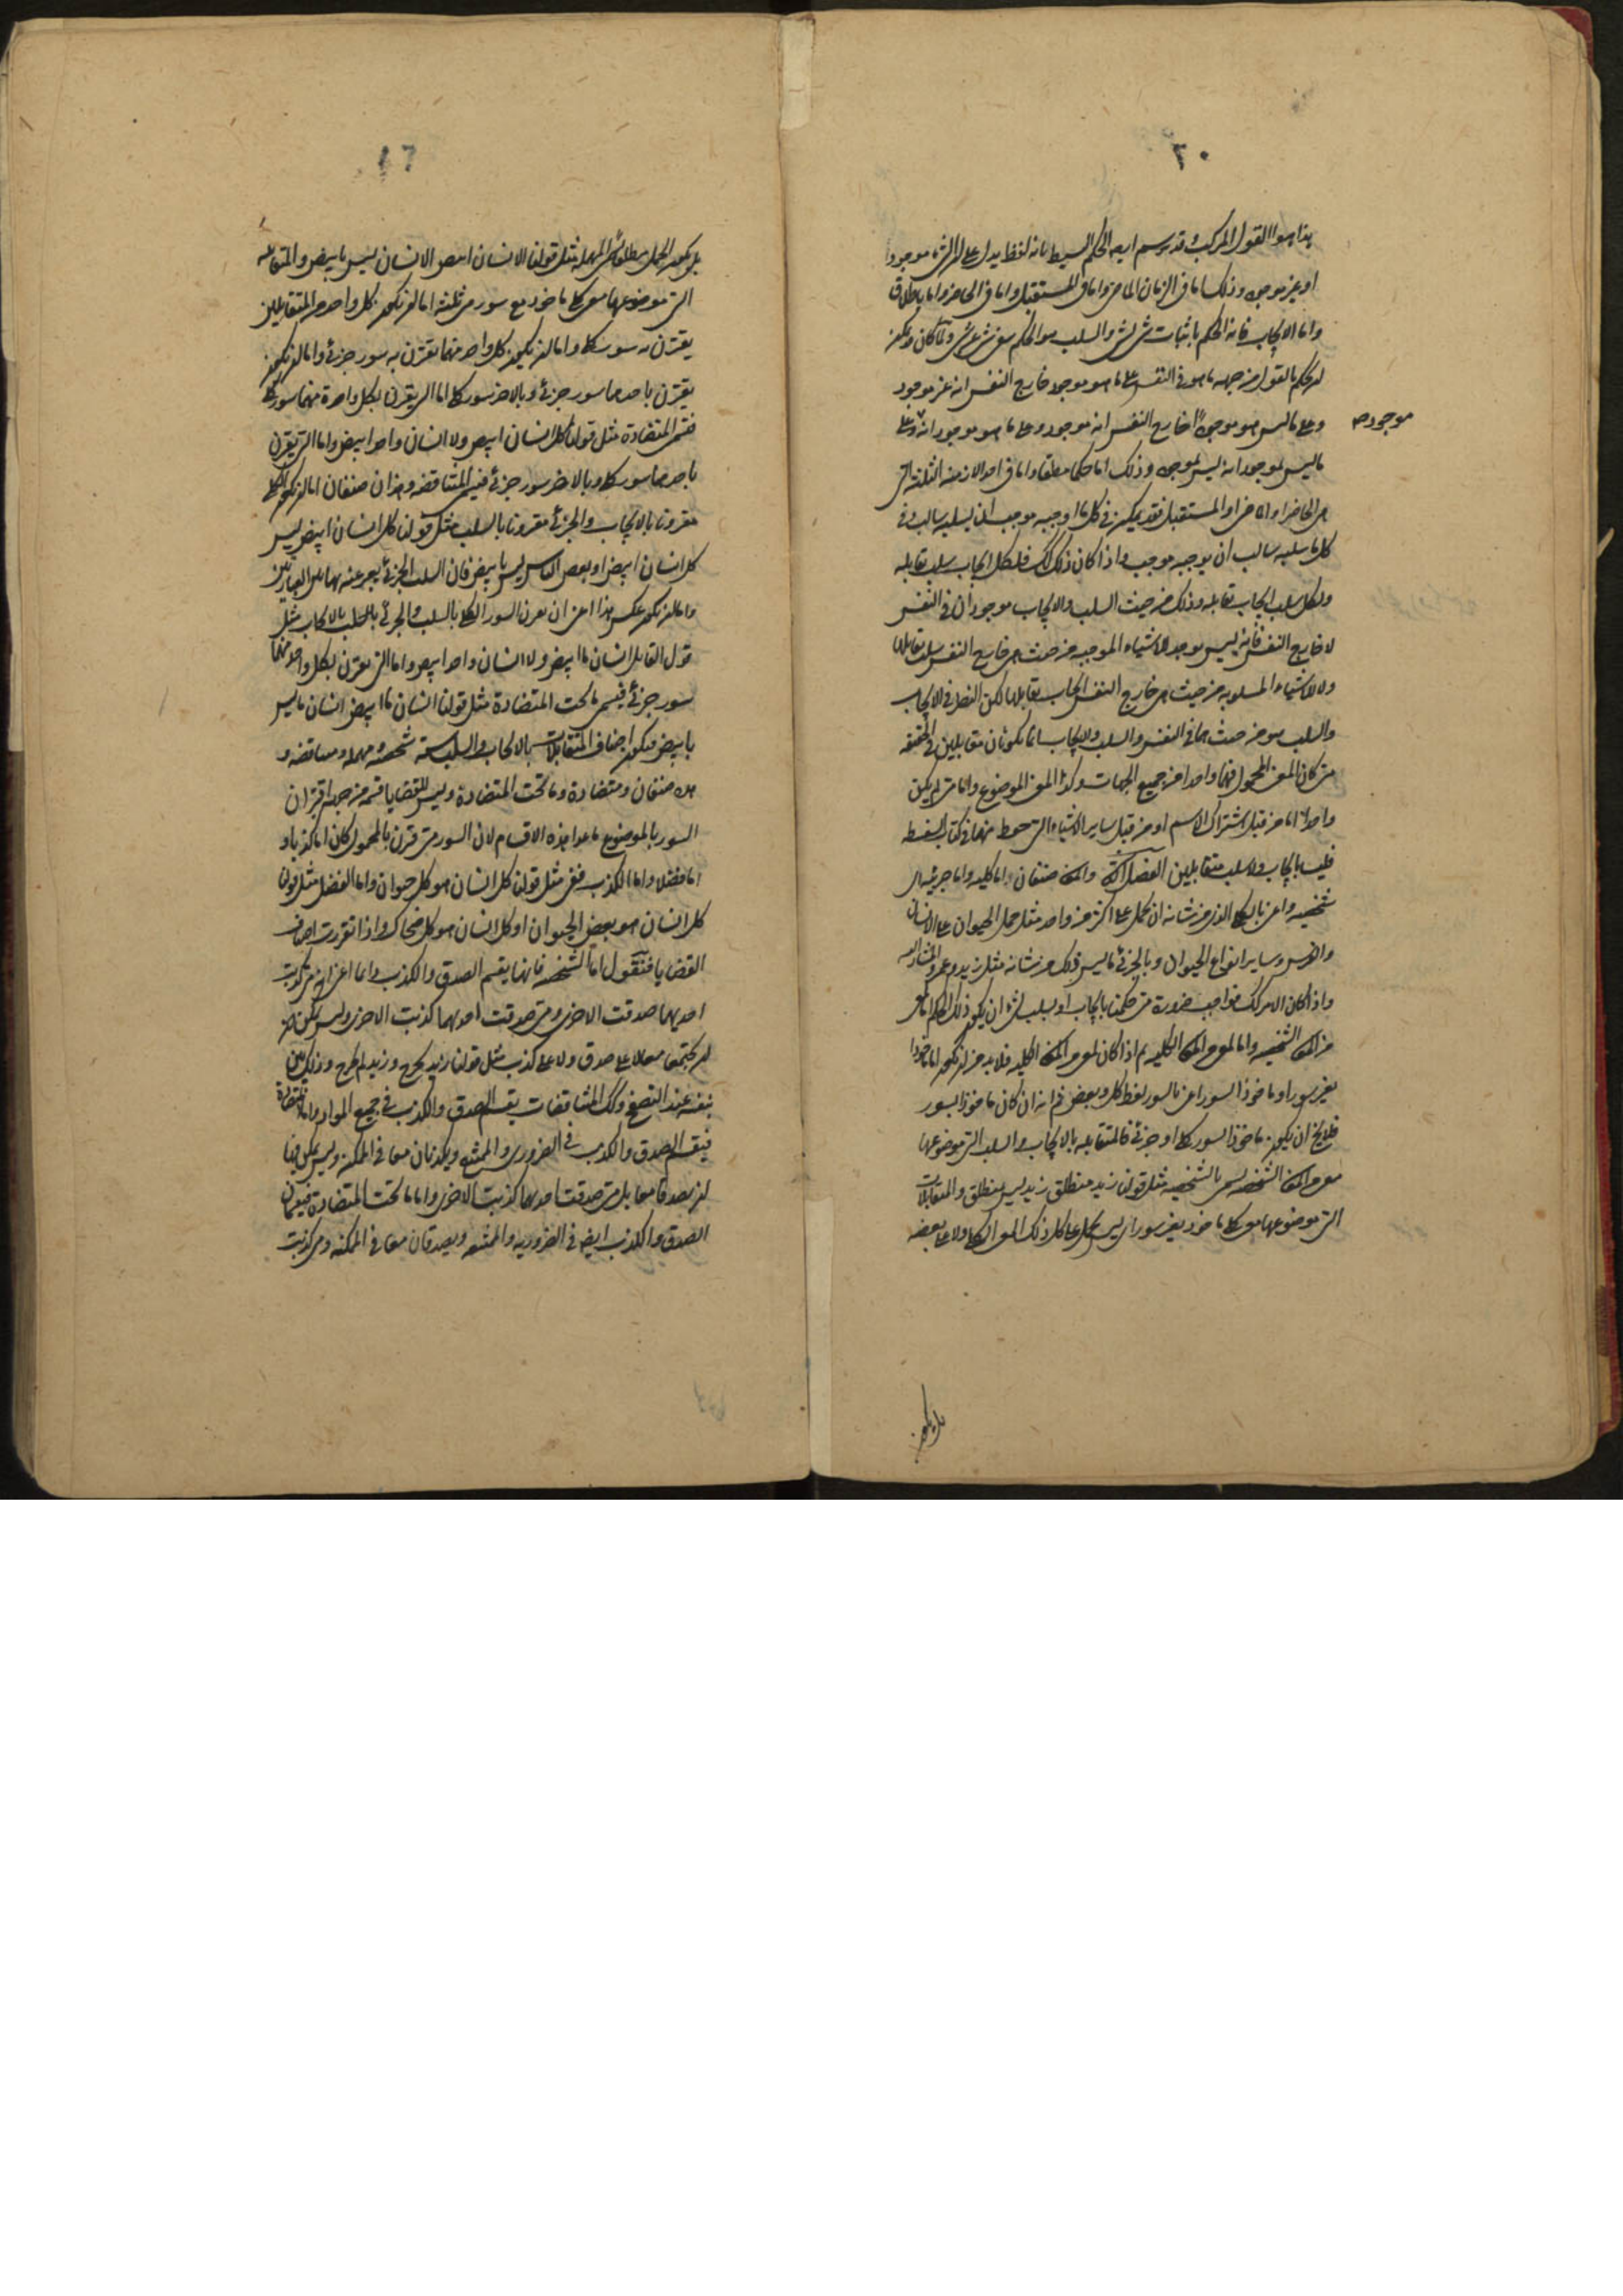 ٢٠
هذا هو القول المركب وقد يرسم ايضا الحكم البسيط بانه لفظ يدل على ان الشئ موجودا
او غير موجود وذلك اما فى الزمان الماضى واما فى المستقبل واما فى الحاضر واما باطلاق
واما الايجاب فانه الحكم باثبات شئ لشئ والسلب هو الحكم بنفى شئ عن شئ ولما كان يمكن
ان يحكم بالقول من جهة ما هو فى النفس على ما هو موجود خارج النفس انه غير موجود
وعلى ما ليس هو موجودا خارج النفس انه موجود وعلى ما هو موجود انه وعلى
موجود صح
ما ليس بموجود انه ليس بموجود وذلك اما حكما مطلقا واما فى احد الازمنة الثلثة التى
هى الحاضر او الماضى او المستقبل فقد يمكن فى كل ما اوجبه موجب ان يسلبه سالب وفى
كل ما سلبه سالب ان يوجبه موجب واذا كان ذلك كك فلكل ايجاب سلب يقابله
ولكل سلب ايجاب يقابله وذلك من حيث السلب والايجاب موجودان فى النفس
لا خارج النفس فانه ليس يوجد للاشياء الموجبة من حيث هى خارج النفس سلب يقابلها
ولا للاشياء المسلوبة من حيث هى خارج النفس ايجاب يقابلها لكن النظر فى الايجاب
والسلب هو من حيث هما فى النفس والسلب والايجاب انما يكونان متقابلين فى الحقيقة
متى كان المعنى المحمول فيهما واحدا من جميع الجهات وكذا المعنى الموضوع واما متى لم يكن
واحدا اما من قبل اشتراك الاسم او من قبل ساير الاشياء التى فى كتاب السفسطة
فليسا بايجاب ولا سلب متقابلين الفصل والمعانى صنفان اما كلية واما جزئية اى
شخصية واعنى بالكلى الذى من شانه ان يحمل على اكثر من واحد مثل حمل الحيوان على الانسان
والفرس وساير انواع الحيوان وبالجزئى ما ليس ذلك من شانه مثل زيد وعمرو المشار اليه
واذا كان الامر كك فواجب ضرورة متى حكمنا بايجاب او بسلب شئ ان يكون ذلك الحكم اما لمعنى
من المعانى الشخصية واما لمعنى من المعانى الكلية ثم اذا كان لمعنى من المعانى الكلية فلا بد من ان يكون اما ماخوذا
بغير سور او ماخوذا بسور اعنى بالسور لفظ كل وبعض ثم انه ان كان ماخوذا بسور
فلا يخ ان يكون ماخوذا بسور كلى او جزئى فالمتقابلة بالايجاب والسلب التى موضوعها
معنى من المعانى الشخصية تسمى بالشخصية مثل قولنا زيد منطلق زيد ليس بمنطلق والمتقابلات
التى موضوعها معنى كلى ماخوذ بغير سور اى ليس يحمل على كل ذلك المعنى الكلى ولا على بعضه
بل يكون
١٦
بل يكون الحمل مطلقا تسمى المهملة مثل قولنا الانسان ابيض الانسان ليس بابيض والمتقابلة
التى موضوعها معنى كلى ماخوذ مع سور هى ثلثة اما ان يكون كل واحد من المتقابلين
يقترن به سور كلى واما ان يكون كل واحد منهما يقترن به سور جزئى واما ان يكون
يقترن باحدهما سور جزئى وبالاخر سور كلى اما التى يقرن بكل واحدة منهما سور كلى
فتسمى المتضادة مثل قولنا كل انسان ابيض ولا انسان واحد ابيض واما التى يقرن
باحدهما سور كلى وبالاخر سور جزئى فتسمى المتناقضة وهذان صنفان اما ان يكون الكلى
مقرونا بالايجاب والجزئى مقرونا بالسلب مثل قولنا كل انسان ابيض ليس
كل انسان ابيض او بعض الناس ليس بابيض فان السلب الجزئى يعبر عنه بهاتين العبارتين
واما ان يكون عكس هذا اعنى ان يقرن السور الكلى بالسلب والجزئى بالايجاب مثل
قول القايل انسان ما ابيض ولا انسان واحد ابيض واما التى يقرن بكل واحد منهما
سور جزئى فتسمى ما تحت المتضادة مثل قولنا انسان ما ابيض انسان ما ليس
بابيض فيكون اصناف المتقابلات بالايجاب والسلب ستة شخصية ومهملة ومتناقضة و
هى صنفان ومتضادة وما تحت المتضادة وليس للقضايا قسمة من جهة اقتران
السور بالموضوع ما عدا هذه الاقسام لان السور متى قرن بالمحمول كان اما كذبا و
اما فضلا واما الكذب ففى مثل قولنا كل انسان هو كل حيوان واما الفضل مثل قولنا
كل انسان هو بعض الحيوان او كل انسان هو كل ضحاك واذا تقررت اصناف
القضايا فنقول اما الشخصية فانها يقسم الصدق والكذب دائما اعنى انه متى كذبت
احديهما صدقت الاخرى ومتى صدقت احديهما كذبت الاخرى وليس يمكن فيها
ان يجتمعا معا لا على صدق ولا على كذب مثل قولنا زيد يخرج وزيد لم يخرج وذلك بين
بنفسه عند التصفح وكك المتناقضات يقسم الصدق والكذب فى جميع المواد واما المتضادة
فيقسم الصدق والكذب فى الضرورى والممتنع ويكذبان معا فى الممكنة وليس يمكن فيها
ان يصدقا معا بل متى صدقت احديهما كذبت الاخرى واما ما تحت المتضادة فيقسمان
الصدق والكذب ايضا فى الضرورية والممتنعة ويصدقان معا فى الممكنة ومتى كذبت